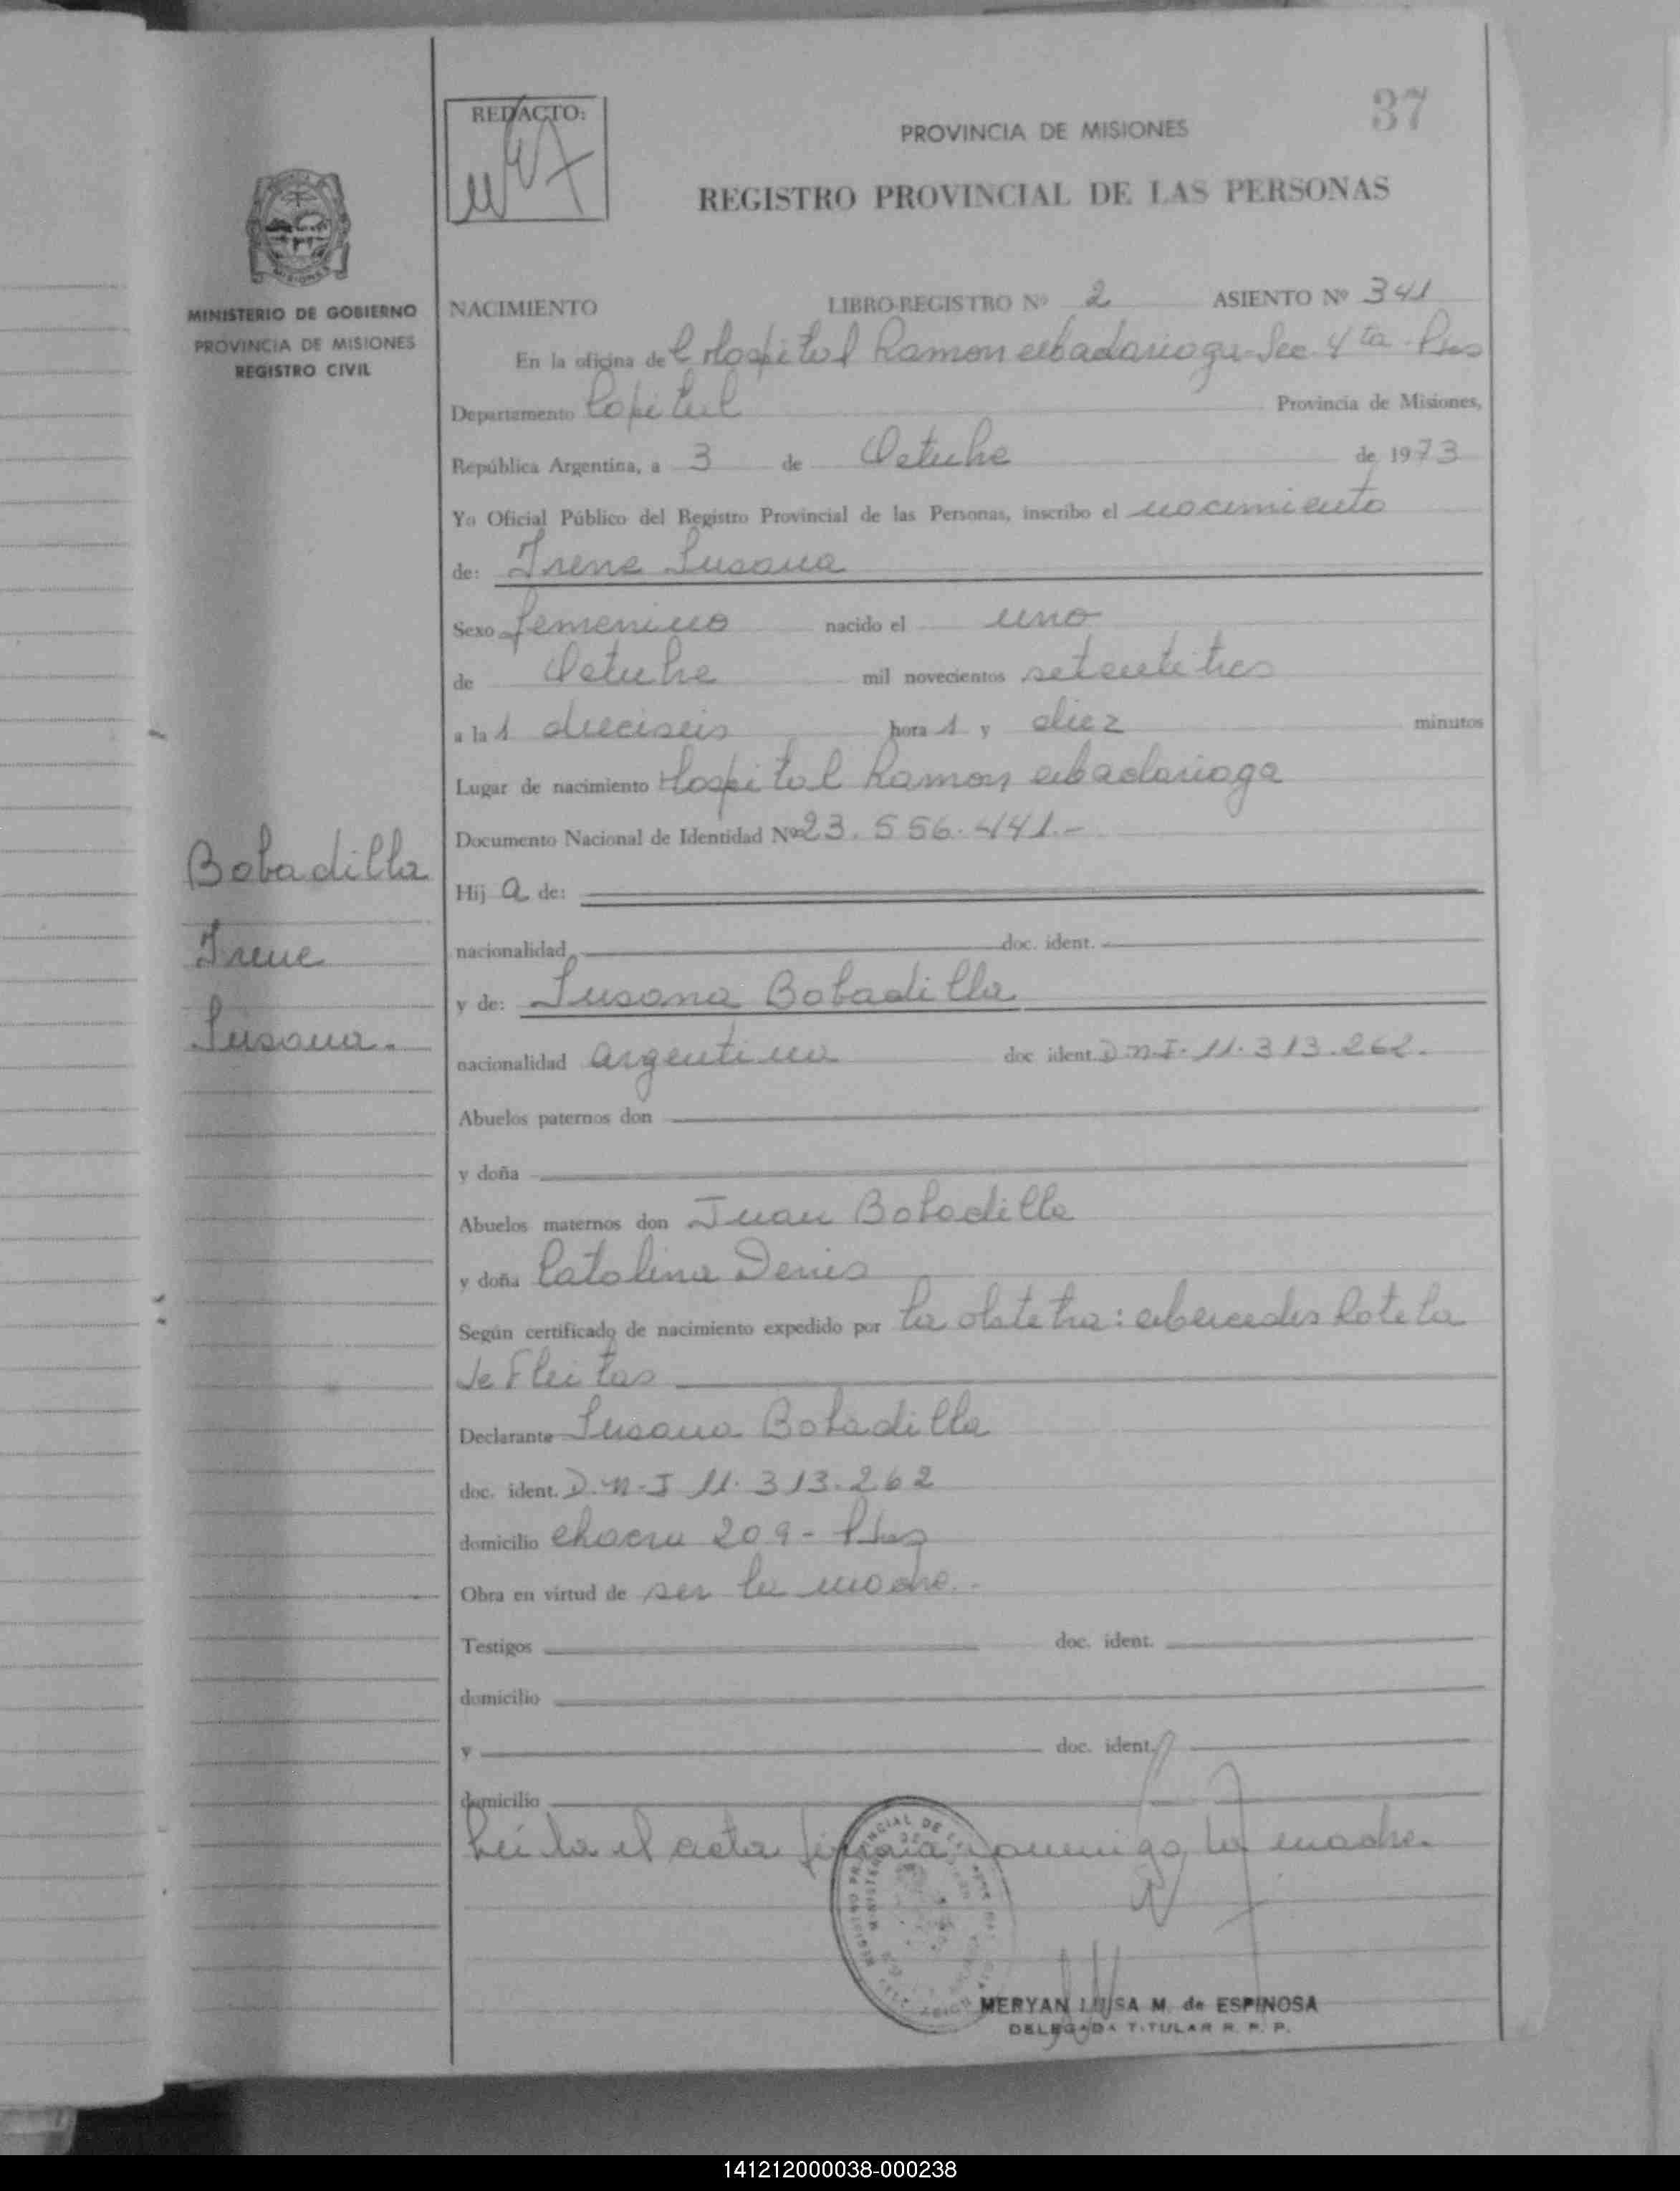 37
REDACTO:
PROVINCIA DE MISIONES
REGISTRO PROVINCIAL DE LAS PERSONAS
MINISTERIO DE GOBIERNO
PROVINCIA DE MISIONES
REGISTRO CIVIL
NACIMIENTO LIBRO-REGISTRO Nº 2 ASIENTO Nº 341
En la oficina de Hospital Ramon Madariaga - Sec 4ta - Pdas
Departamento Capital Provincia de Misiones,
República Argentina, a 3 de Octubre de 1973
Yo Oficial Público del Registro Provincial de las Personas, inscribo el nacimiento
de: Irene Susana
Sexo femenino nacido el uno
de Octubre mil novecientos setentitres
a las dieciseis horas y diez minutos
Lugar de nacimiento Hospital Ramon Madariaga
Documento Nacional de Identidad Nº 23.556.441.-
Bobadilla
Irene
Susana.
Hij a de:
nacionalidad doc. ident.
y de: Susana Bobadilla
nacionalidad argentina doc ident. D.N.I. 11.313.262.
Abuelos paternos don
y doña
Abuelos maternos don Juan Bobadilla
y doña Catalina Denis
Según certificado de nacimiento expedido por la obstetra: Mercedes Rotela
de Fleitas
Declarante Susana Bobadilla
doc. ident. D.N.I 11.313.262
domicilio chacra 209 - Pdas
Obra en virtud de ser la madre.-
Testigos doc. ident.
domicilio
y doc. ident.
domicilio
Leida el acta firma conmigo la madre.
MERYAN LUISA M. de ESPINOSA
DELEGADA TITULAR R. P. P.
141212000038-000238